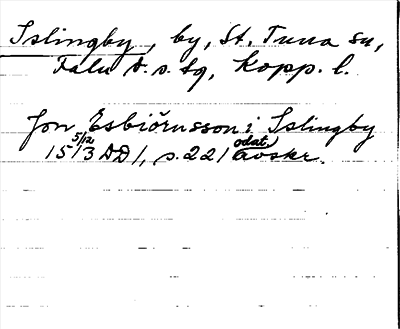 Islingby, by, St. Tuna sn,
Falu D. s. tg, Kopp. l.
Jon Esbiörnsson i Islingby
15 5/12 13 DD 1, s. 221 odat. avskr.